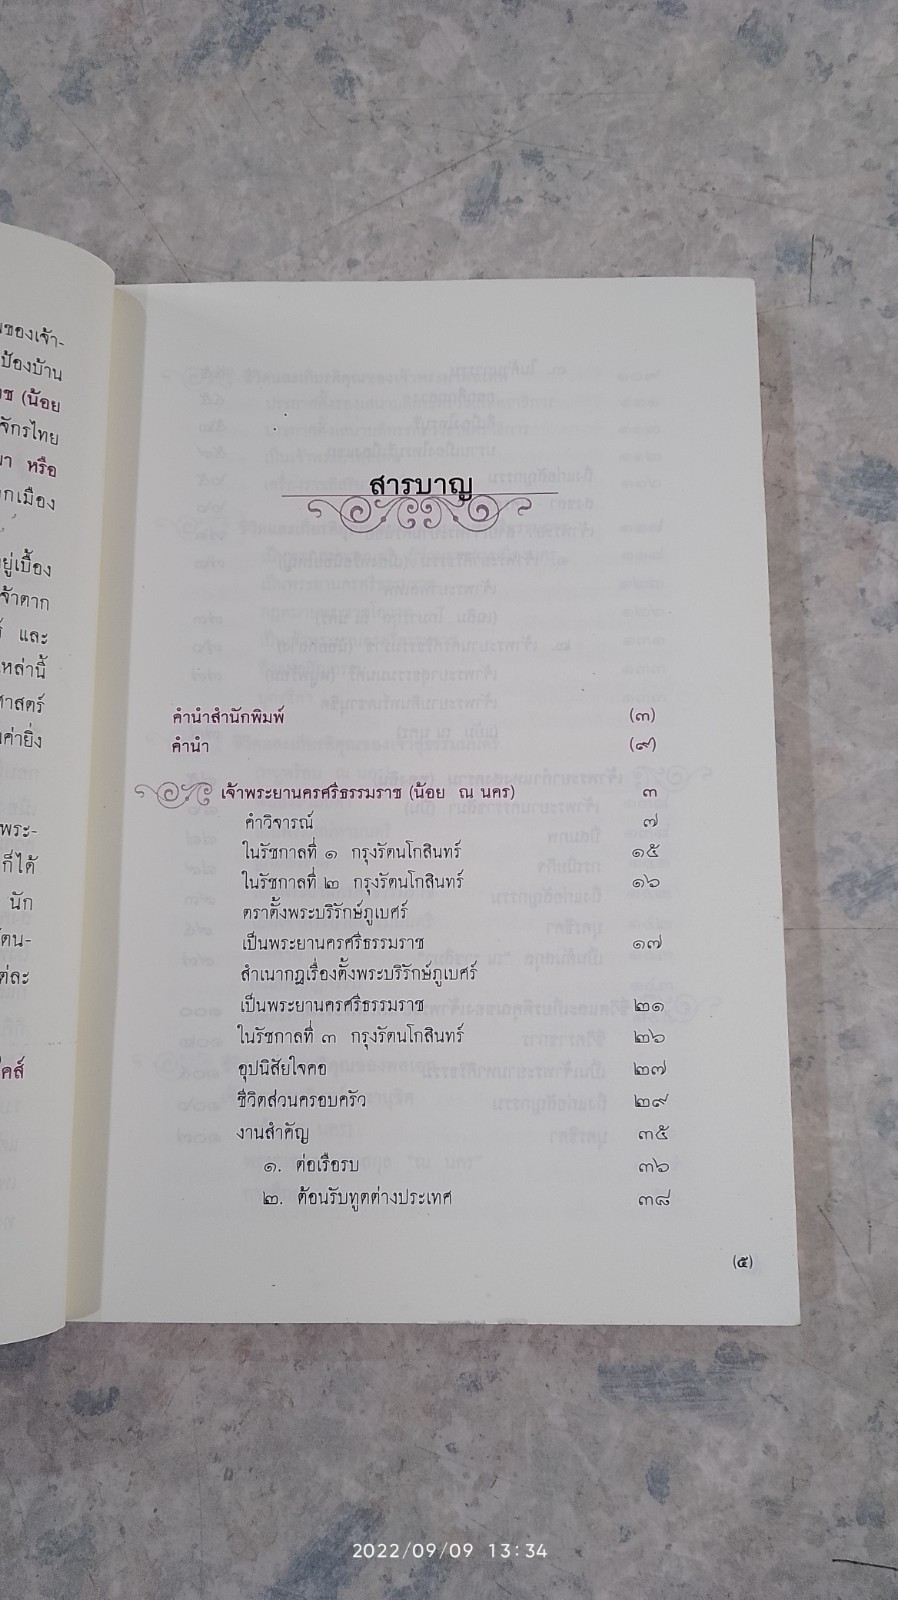 ของเจ้า-
ป้องบ้าน
ช (น้อย
จักรไทย
มา หรือ
กเมือง
ยู่เบื้อง
จ้าตาก
และ
เหล่านี้
าสตร์
ค่ายิ่ง
พระ-
ก็ได้
นัก
ตน-
ต่ละ
คส์
สารบาญ
คำนำสำนักพิมพ์ (๓)
คำนำ (๙)
เจ้าพระยานครศรีธรรมราช (น้อย ณ นคร) ๓
คำวิจารณ์ ๗
ในรัชกาลที่ ๑ กรุงรัตนโกสินทร์ ๑๕
ในรัชกาลที่ ๒ กรุงรัตนโกสินทร์ ๑๖
ตราตั้งพระบริรักษ์ภูเบศร์
เป็นพระยานครศรีธรรมราช ๑๗
สำเนากฎเรื่องตั้งพระบริรักษ์ภูเบศร์
เป็นพระยานครศรีธรรมราช ๒๑
ในรัชกาลที่ ๓ กรุงรัตนโกสินทร์ ๒๖
อุปนิสัยใจคอ ๒๗
ชีวิตส่วนครอบครัว ๒๙
งานสำคัญ ๓๕
๑. ต่อเรือรบ ๓๖
๒. ต้อนรับทูตต่างประเทศ ๓๘
(๕)
2022/09/09 13:34